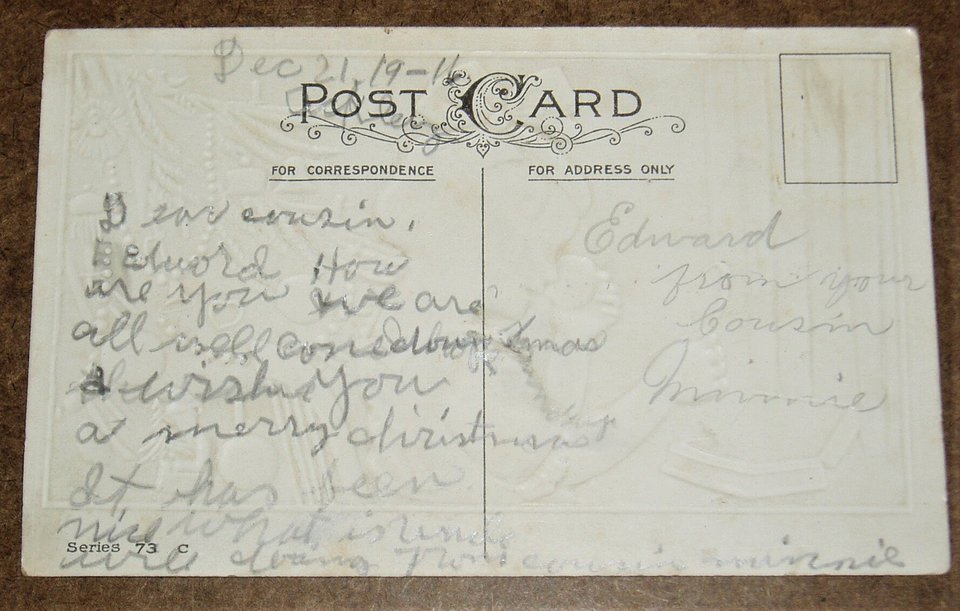 Dec 21, 19-11
POST CARD
FOR CORRESPONDENCE
FOR ADDRESS ONLY
Dear cousin.
Edword How
are you we are
all well come down Xmas
I wish you
a merry christmas
It has been
nice what is
Series 73 C
will doing From cousin minnie
Edward
from your
Cousin
Minnie